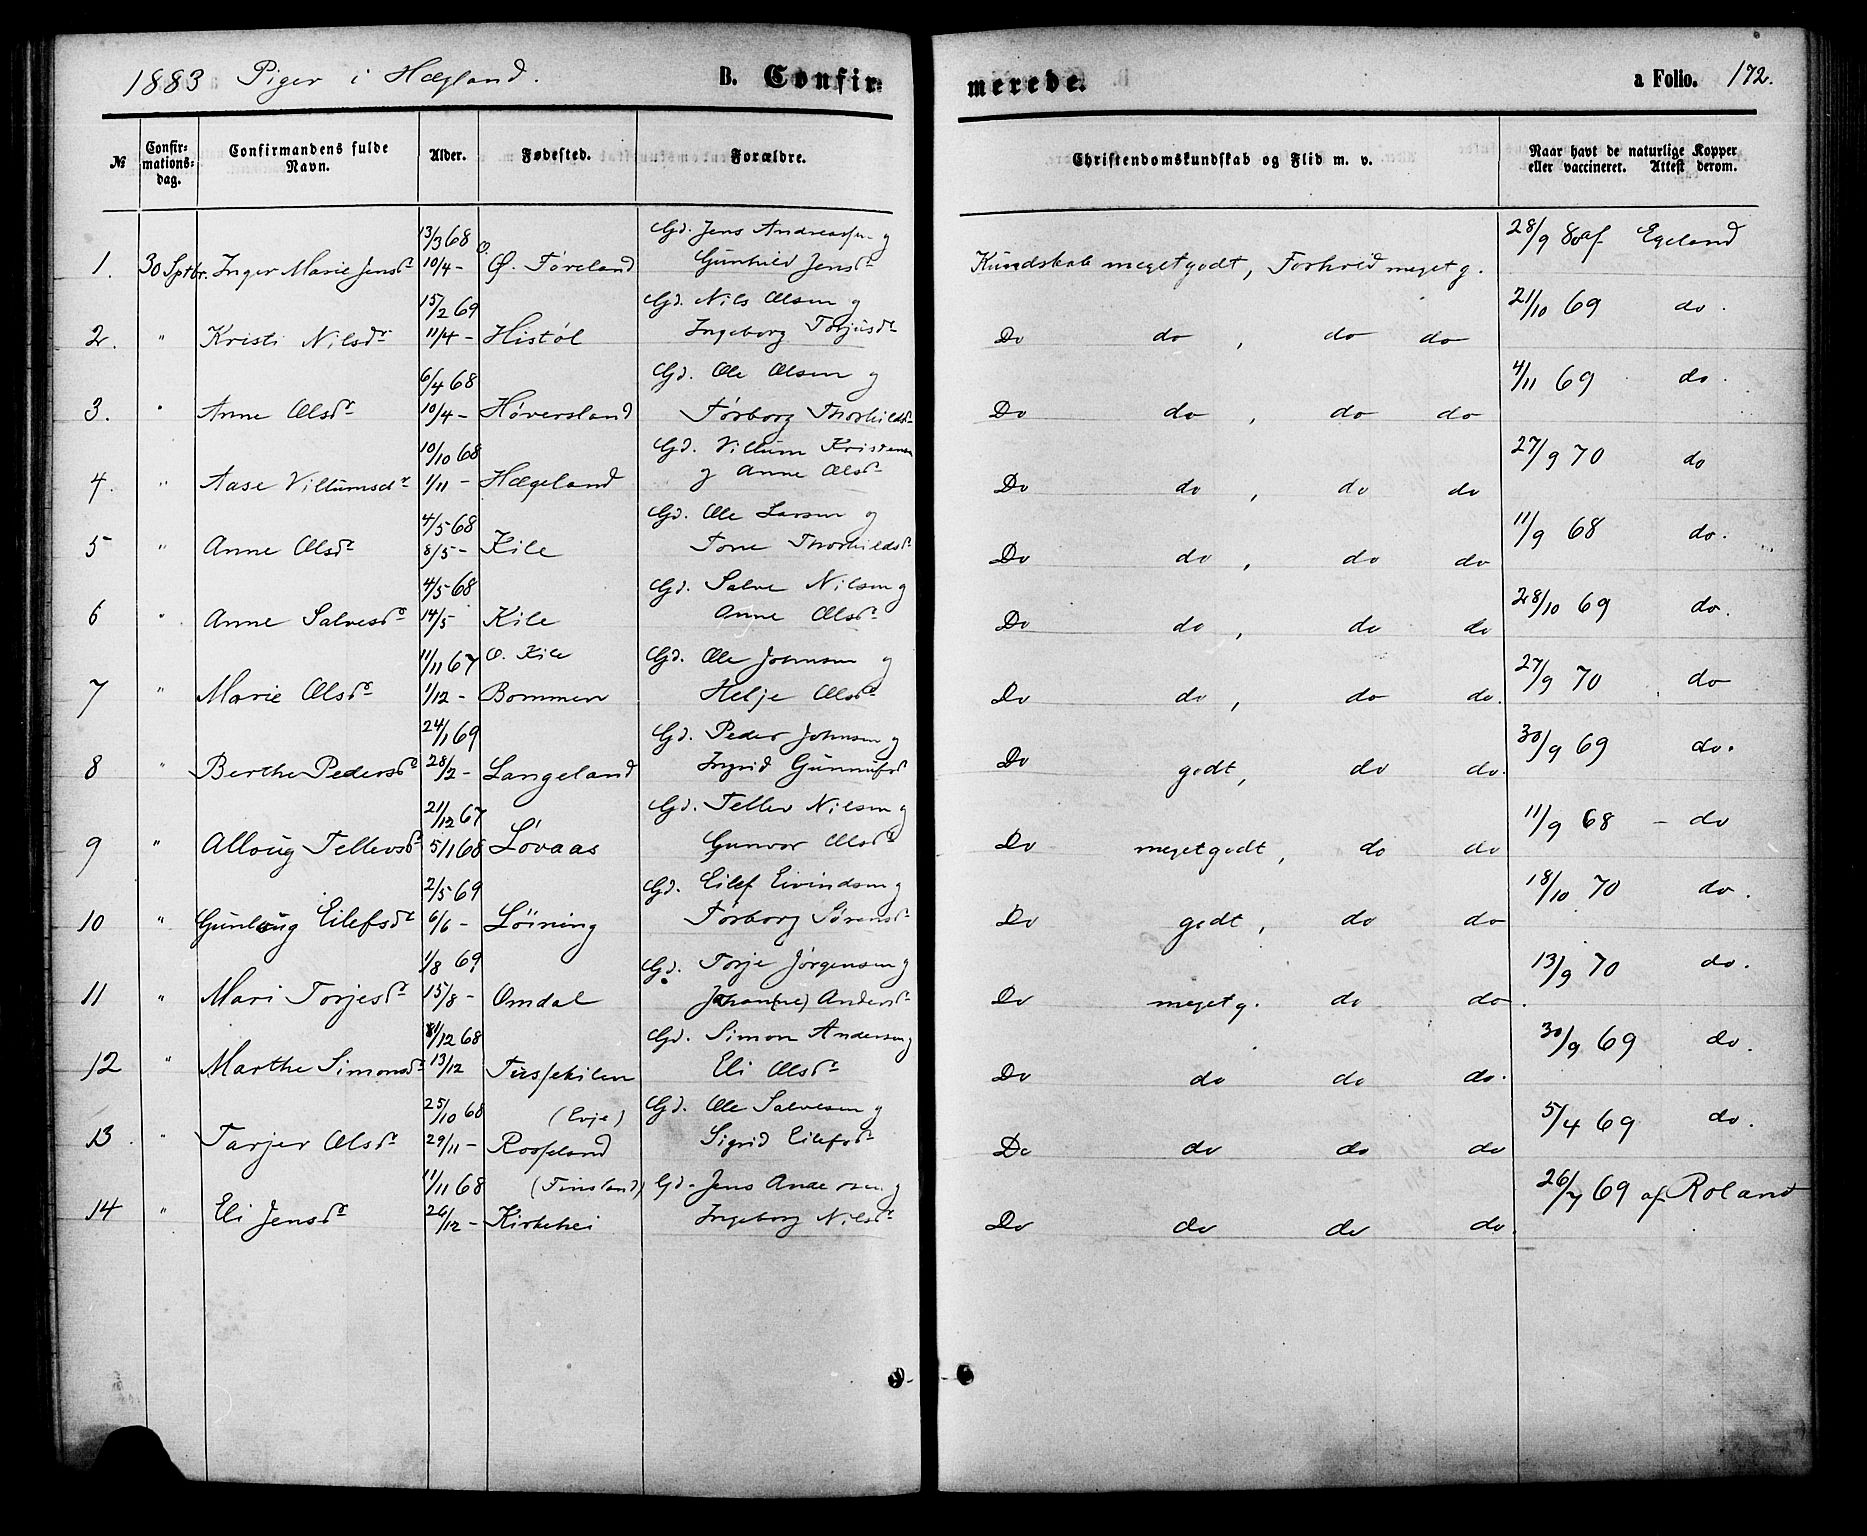 1883 Piger i Hægeland. B. Confir- merede. a Folio. 172.
№ Confir-mations-dag. Confirmandens fulde Navn. Alder. Fødested. Forældre. Christendomskundskab og Flid m. v. Naar havt de naturlige Kopper eller vaccineret. Attest derom.
13/3 68 Gd. Jens Andreassen og 28/9 80 af Egeland
1. 30 Sptbr. Inger Marie Jensdr 10/4 - Ø. Føreland Gunhild Jensdr Kundskab meget godt, Forhold meget g.
15/2 69 Gd. Nils Olsen og 21/10 69 do.
2. " Kristi Nilsdr 11/4 - Histøl Ingeborg Torjusdr Do do, do do
6/4 68 Gd. Ole Olsen og 4/11 69 do.
3. " Anne Olsdr 10/4 - Høversland Tørborg Thorkildsdr Do do, do do
10/10 68 Gd. Villum Kristensen 27/9 70 do
4. " Aase Villumsdr 1/11 - Hægeland og Anne Olsdr Do do, do do
4/5 68 Gd. Ole Larsen og 11/9 68 do.
5 " Anne Olsdr 8/5 - Kile Tone Thorkildsdr Do do, do do
4/5 68 Gd. Salve Nilsen og 28/10 69 do.
6 " Anne Salvesdr 14/5 Kile Anne Olsdr Do do, do do
11/11 67 O. Kile Gd. Ole Johnsen og 27/9 70 do
7 " Marie Olsdr 1/12 - Bommen Helje Olsdr Do do, do do.
24/1 69 Gd. Peder Johnsen og 30/9 69 do.
8 " Berthe Pedersdr 28/2 - Langeland Ingrid Gunnufsdr Do godt, do do.
21/12 67 Gd. Tellev Nilsen og 11/9 68 - do
9 " Alloug Tellevsdr 5/1 68 Løvaas Gunvor Olsdr Do meget godt, do do
2/5 69 Gd. Eilef Eivindsen og 18/10 70 do.
10 " Gunloug Eilefsdr 6/6 - Løining Tørborg Sørensdr Do godt, do do
1/8 69 Gd. Torje Jørgensen og 13/9 70 do.
11 " Mari Torjesdr 15/8 - Omdal Johan(ne) Andersdr Do meget g. do do.
12 68 Gd. Simon Andersen og 30/9 69 do.
12 " Marthe Simonsdr 13/12 Tussekilen Eli Olsdr Do do do do.
25/10 68 (Evje) Gd. Ole Salvesen og 5/4 69 do.
13. " Tarjer Olsdr 29/11 - Rosseland Sigrid Eilefsdr Do do do do
11/11 68 (Finsland) Gd. Jens Andersen og 26/7 69 af Roland
14 " Eli Jensdr 26/12 - Kirkehei Ingeborg Nilsdr Do do do do.